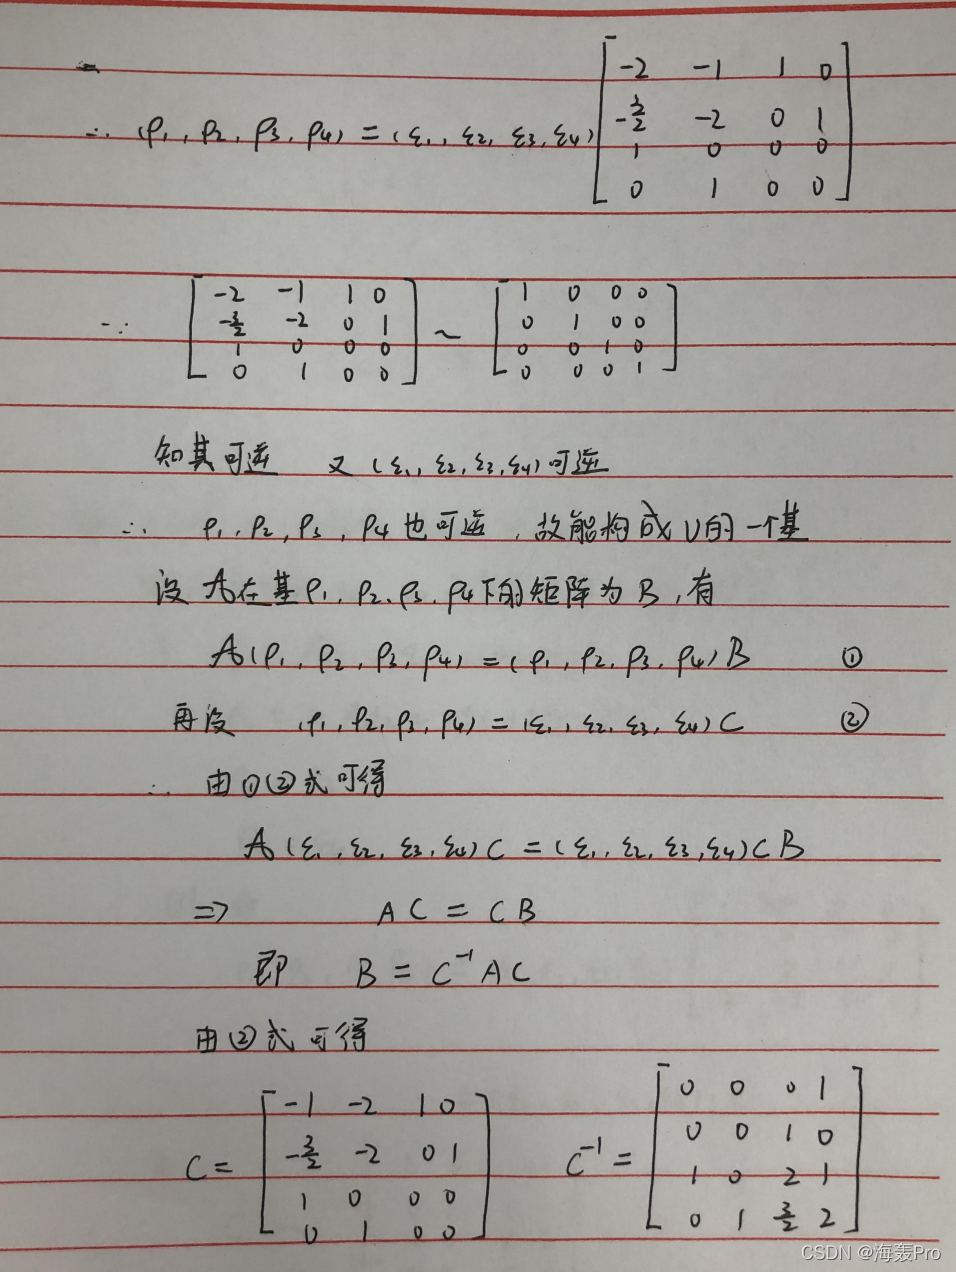 ∴ (ρ₁, ρ₂, ρ₃, ρ₄) = (ε₁, ε₂, ε₃, ε₄) [ -2 -1 1 0
-3/2 -2 0 1
1 0 0 0
0 1 0 0 ]
∵ [ -2 -1 1 0 ] ~ [ 1 0 0 0 ]
[ -3/2 -2 0 1 ] [ 0 1 0 0 ]
[ 1 0 0 0 ] [ 0 0 1 0 ]
[ 0 1 0 0 ] [ 0 0 0 1 ]
知其可逆 又 (ε₁, ε₂, ε₃, ε₄) 可逆
∴ ρ₁, ρ₂, ρ₃, ρ₄ 也可逆,故能构成U的一个基
设 A在基 ρ₁, ρ₂, ρ₃, ρ₄下的矩阵为B,有
A(ρ₁, ρ₂, ρ₃, ρ₄) = (ρ₁, ρ₂, ρ₃, ρ₄)B ①
再设 (ρ₁, ρ₂, ρ₃, ρ₄) = (ε₁, ε₂, ε₃, ε₄)C ②
∴ 由①②式可得
A(ε₁, ε₂, ε₃, ε₄)C = (ε₁, ε₂, ε₃, ε₄)CB
=> AC = CB
即 B = C⁻¹AC
由②式可得
C = [ -1 -2 1 0 ] C⁻¹ = [ 0 0 0 1 ]
[ -3/2 -2 0 1 ] [ 0 0 1 0 ]
[ 1 0 0 0 ] [ 1 0 2 1 ]
[ 0 1 0 0 ] [ 0 1 3/2 2 ]
CSDN @海轰Pro